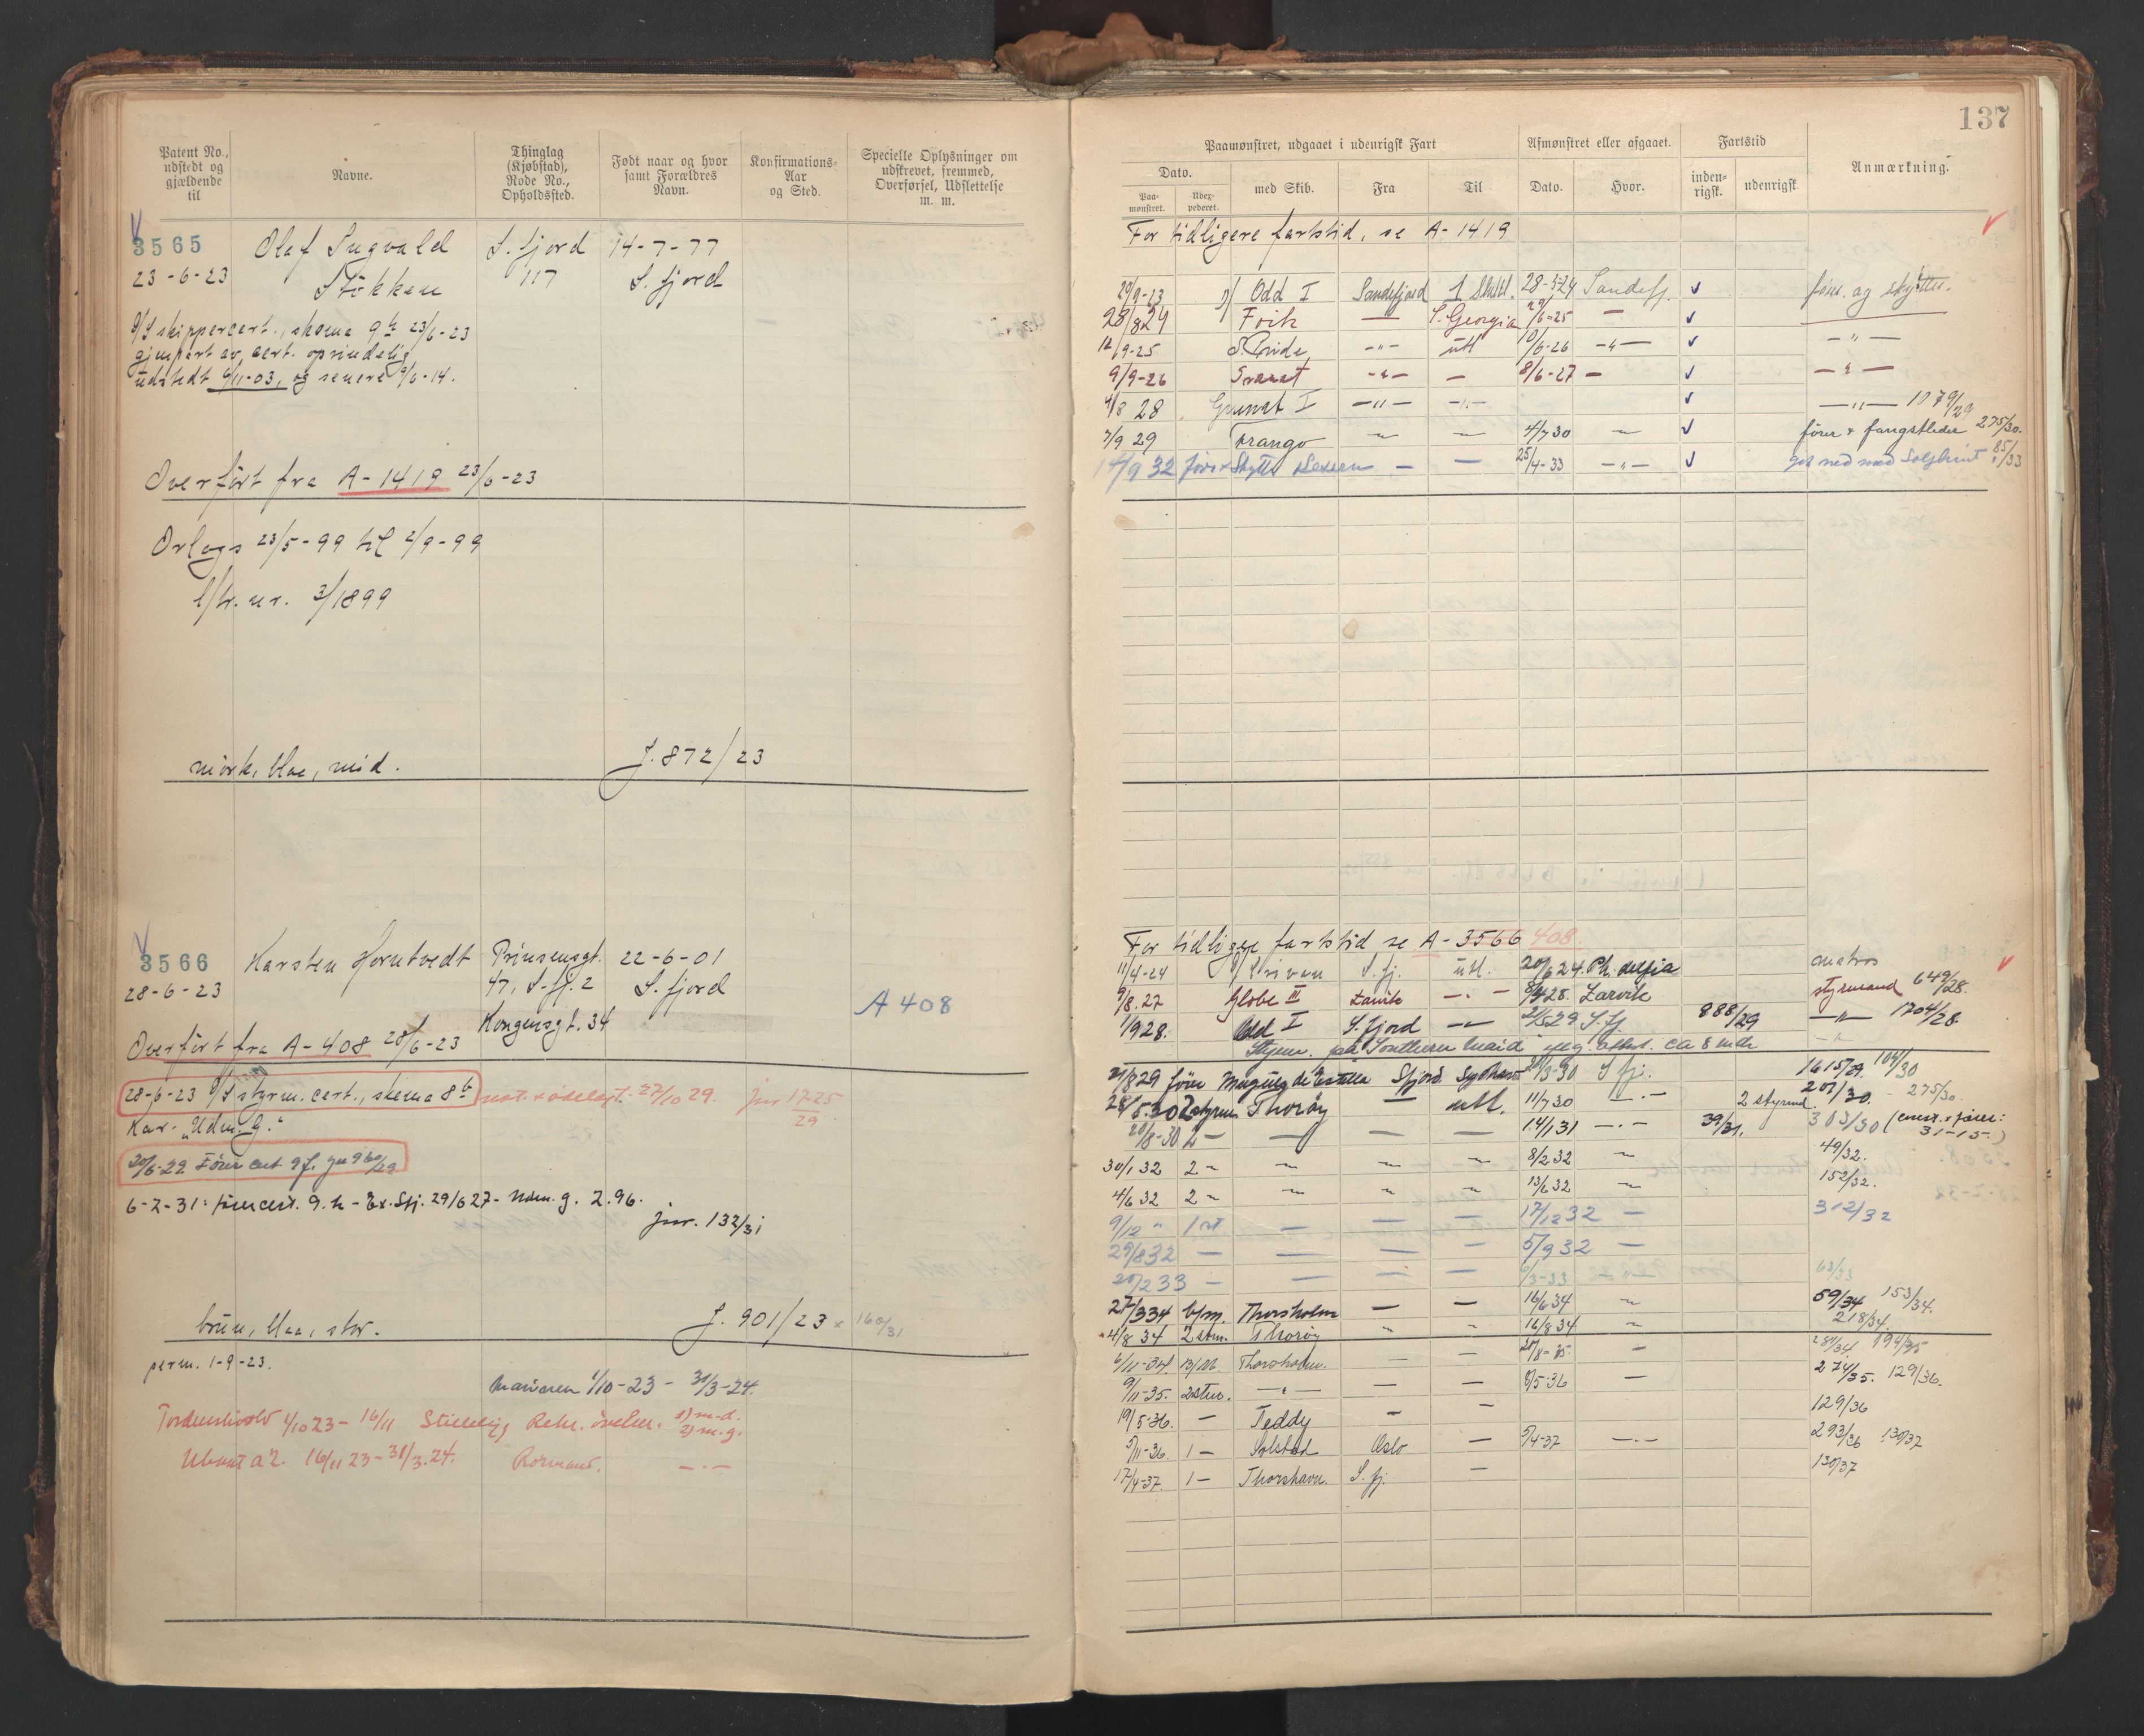 Patent No., udstedt og gjældende til
Navne.
Thinglag (Kjøbstad), Rode No., Opholdssted.
Født naar og hvor samt Forældres Navn.
Konfirmations-Aar og Sted.
Specielle Oplysninger om udskrevet, fremmed, Overførsel, Udslettelse m. m.
3565
Olaf Ingvald
S. fjord
14-7-77
23-6-23
Stökken
117
S. fjord
D/S skippercert., skema 9 h 23/6-23
gjenpart av cert. oprindelig
udstedt 6/11-03, og senere 9/6-14.
Overfört fra A-1419 23/6-23
Orlogs 23/5-99 til 2/9-99
l/nr. nr. 3/1899
mörk, blaa, mid.
J. 872/23
3566
Karsten Horntvedt
Prinsensgt.
22-6-01
28-6-23
47, S.fj. 2
S. fjord
A 408
Kongensgt. 34
Overfört fra A-408 28/6-23
28-6-23 D/S styrm. cert., skema 8 b
mot. x ödelagt. 22/10 29. jnr 1725/29
Kar. "Udm. g."
20/6-29 Förer cert 9 f. jnr 960/29
6-2-31: förercert. 9. h - Ex. Sfj. 29/6 27 - Udm. g. 2.96.
jnr. 132/31
brun, blaa, stor.
J. 901/23 x 160/31
perm. 1-9-23.
Marinen 1/10-23 - 31/3-24.
Tordenskiold 1/10 23 - 16/11
1) m.d.
2) m.g.
16/11 23 - 31/3.24.
Rormand.
137
Paamønstret, udgaaet i udenrigsk Fart
Afmønstret eller afgaaet.
Fartstid
Anmærkning.
Dato.
med Skib.
Fra
Til
Dato.
Hvor.
inden-rigsk.
udenrigsk
Paa-mønstret.
Udex-pederet.
For tidligere fartstid, se A-1419
29/9-23 Odd I Sandefjord 28-5-24 Sandefj. förer og skytter.
28/8 24 Foik — S. Georgia 2/6-25 —
12/9-25 -"- utl 10/6-26 -"- -"-
9/9-26 Svanat -"- — 8/6-27 — -"-
4/8 28 Grunat I -"- -"- -"- 1079/29
7/9 29 — — 4/7 30 — förer & fangstleder 275/30.
14/9 32 förer & Skytter — — 25/4-33 -"- ned med Solglimt 85/33
For tidligere fartstid se A-3566 408.
11/4-24 S. fj. utl. 20/6 24. Ph. delfia matros
9/8.27 Globe III Larvik -"- 28. Larvik styrmand 649/28.
1/9 28. Odd I S. fjord — 2/5 29 S. fj 888/29 -"- 1704/28
Southern Maid ca 8 mdr
21/8 29 förer S fjord 20/3-30 S fj. 1615/29. 104/30
28/5.30 2 styrm Thoröy — utl. 11/7 30 — 2 styrmd. 207/30. - 275/30.
20/8-30 2 — — — — 14/1 31 -"- 39/31. 303/30
30/1 32 2 " " " " 8/2 32 " 49/32.
4/6 32 2 " " " " 13/6 32 " 152/32.
9/12 " 1 st — — — 17/12 32 — 312/32
29/8 32 — — — — 5/9 32 —
20/2 33 — — — — 6/3-33 — 63/33
27/3 34 b/m. Thorsholm — — 16/6 34 " 59/34 153/34.
4/8 34 2 stm. Thoröy " " 16/8 34 " 218/34.
6/11-34. Thorsholm. — — 20/8-35 — 287/34. 194/35
9/11-35. 2 stm. -"- — — 8/5-36 — 274/35. 129/36.
19/5-36. — Teddy — — 129/36
5/11-36. 1 — Solstad Oslo — 5/4-37 -"- 293/36 130/37
17/4-37. 1 — Thorshavn. S. fj. — 130/37